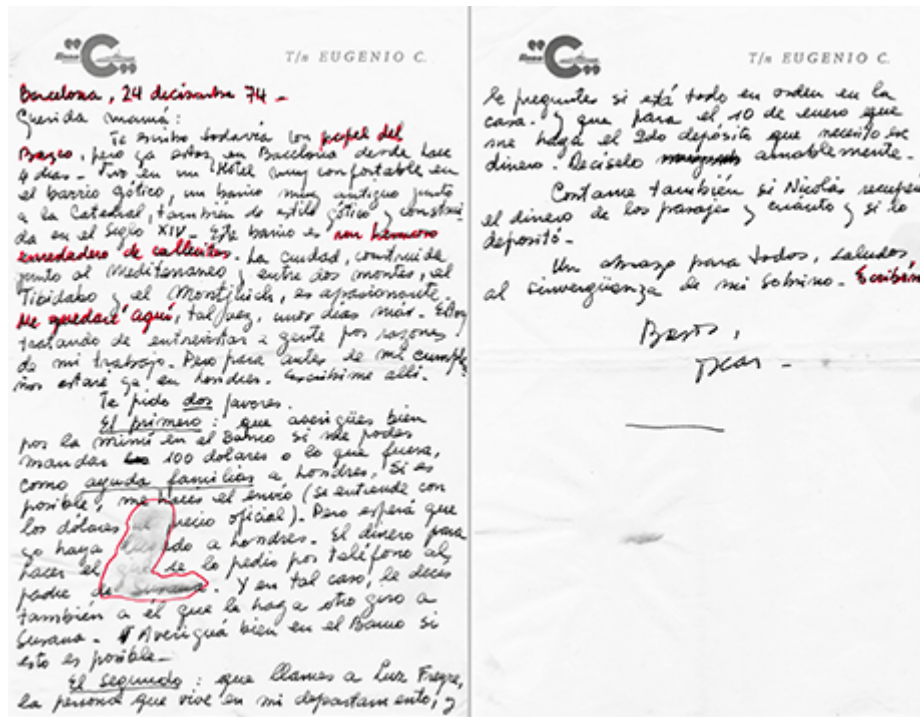 "C"
T/n EUGENIO C.
Barcelona, 24 diciembre 74 -
Querida mamá:
Te escribo todavía con papel del
Barco, pero ya estoy en Barcelona desde hace
4 días - Vivo en un Hotel muy confortable en
el barrio gótico, un barrio muy antiguo junto
a la Catedral, también de estilo gótico y construi
da en el Siglo XIV - Este barrio es un hermoso
enredadero de callecitas. La ciudad, construida
junto al Mediterraneo y entre dos montes, el
Tibidabo y el Montjuich, es apasionante.
Me quedaré aquí, tal vez, unos días más. Estoy
tratando de entrevistar a gente por razones
de mi trabajo. Pero para antes de mi cumple
años estaré ya en Londres. Escribime allí.
Te pido dos favores.
El primero: que averigües bien
por la mimí en el Banco si me podés
mandar 100 dólares o lo que fuera,
como ayuda familiar a Londres. Si es
posible, me haces el envío (se entiende con
los dólares al precio oficial). Pero esperá que
yo haya llegado a Londres. El dinero para
hacer el se lo pedís por teléfono al
padre de Susana. Y en tal caso, le decís
también a él que le haga otro giro a
Susana. Averiguá bien en el Banco si
esto es posible -
El segundo: que llames a Luz Freyre,
la persona que vive en mi departamento, y
"C"
T/n EUGENIO C.
le preguntes si está todo en orden en la
casa. Y que para el 10 de enero que
me haga el 2do depósito que necesito ese
dinero. Decíselo amablemente.
Contame también si Nicolás recuperó
el dinero de los pasajes y cuánto y si lo
depositó -
Un abrazo para todos, saludos,
al sinvergüanza de mi sobrino - Escriban
Besos,
Oscar -